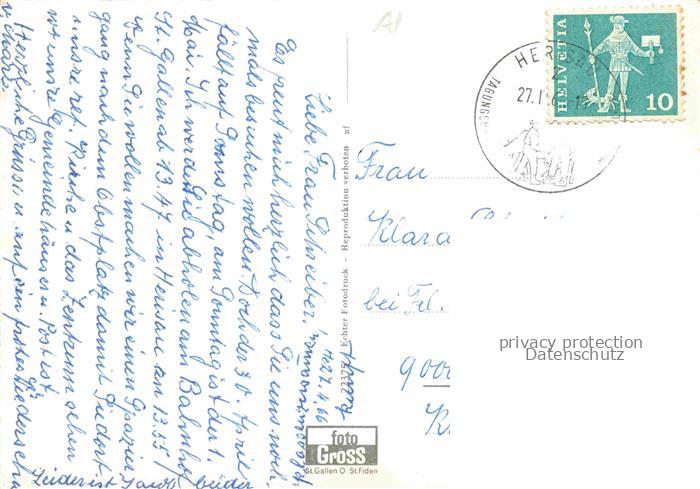 Liebe Frau Schreiber,
Es freut mich herzlich dass Sie uns noch-
mals besuchen wollen. Doch der 30. April
fällt auf Samstag, am Sonntag ist der 1.
Mai. Ich werde Sie abholen am Bahnhof
St. Gallen ab 13.47 in Herisau an 13.55
Wenn Sie wollen, machen wir einen Spazier
gang nach dem Obstplatz damit Sie dort
unsre ref. Kirche u. das Zentrum sehen
wo unsre Gemeindehäuser u. Post ist.
Herzliche Grüsse u. auf ein frohes Wiedersehn
Ihre
Leider ist beider
Her. 27. 4. 66
22375 Echter Fotodruck – Reproduktion verboten nf
foto
Gross
St. Gallen O St. Fiden
HERISAU
27.I
TAGUNGS
HELVETIA
10
Frau
Klara
bei Frl.
9000
privacy protection
Datenschutz